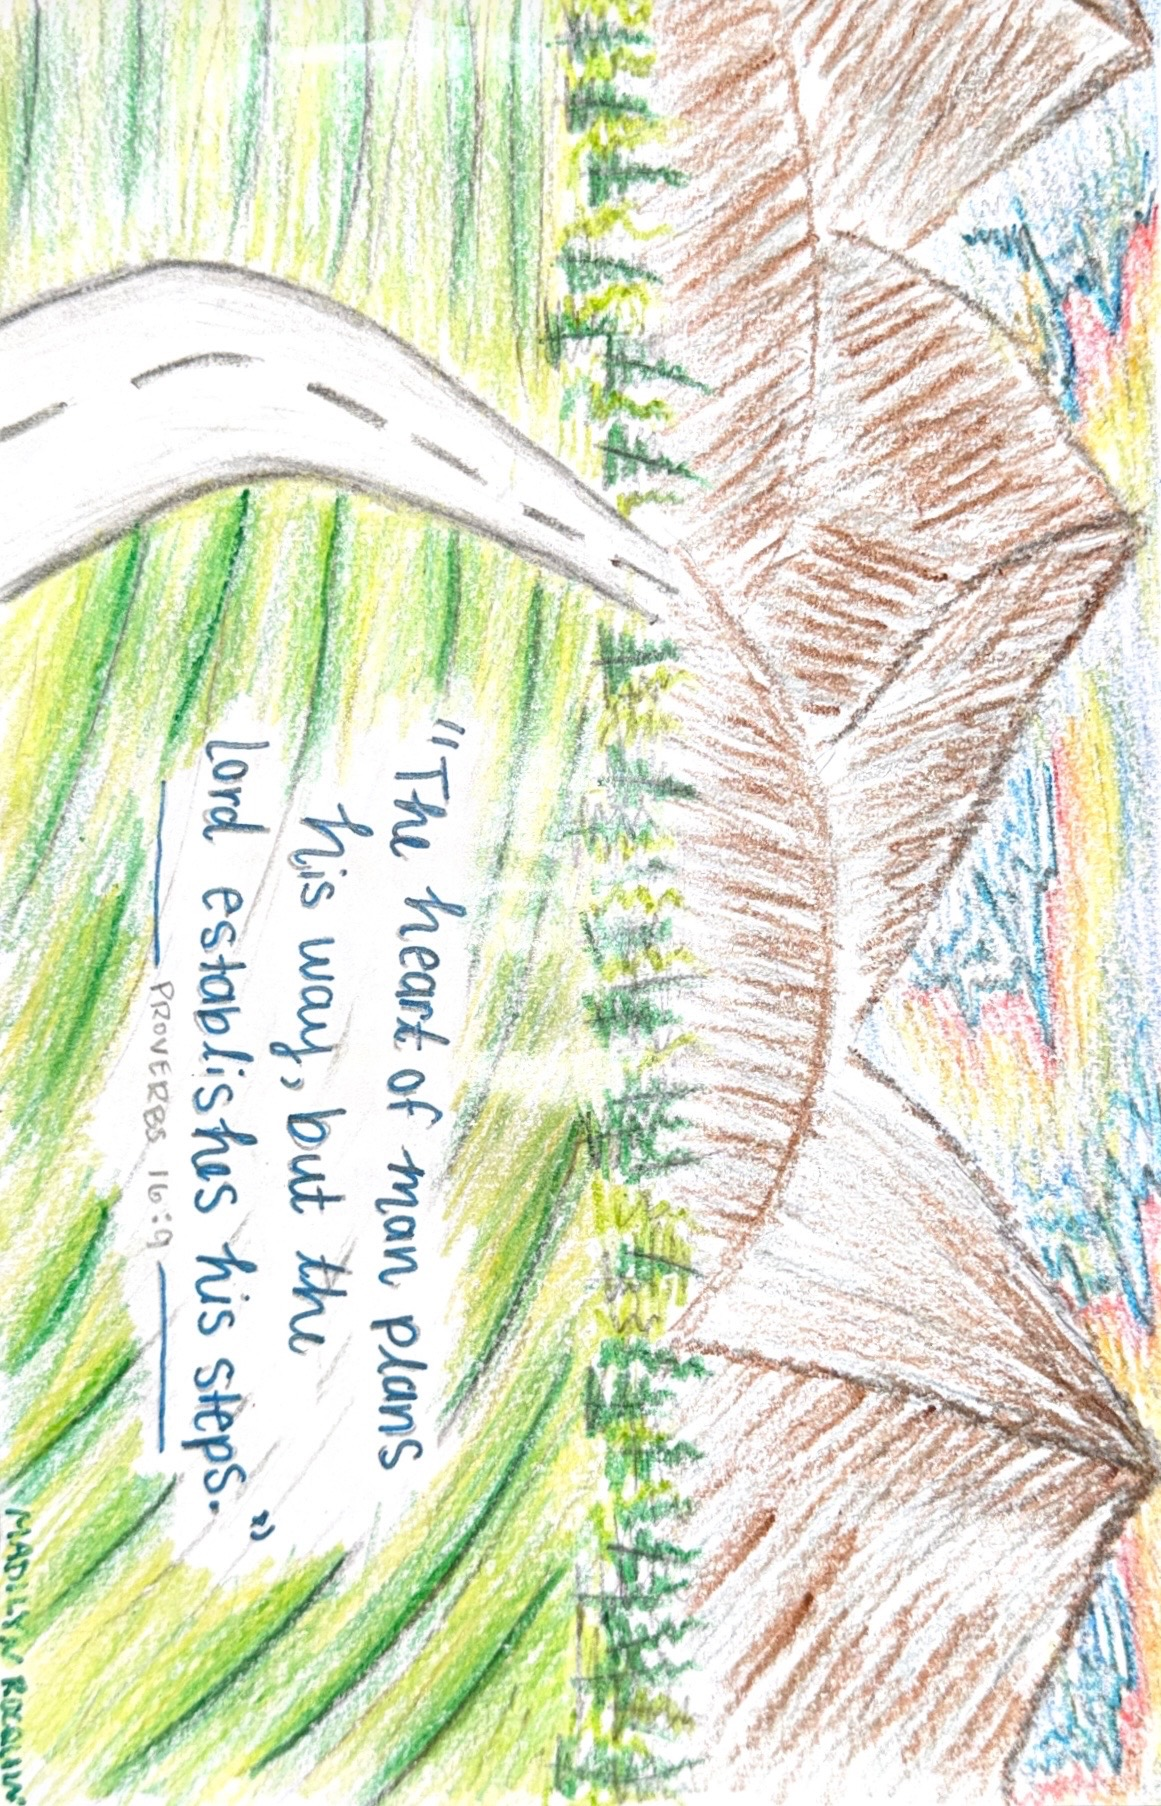 "The heart of man plans
his way, but the
Lord establishes his steps."
PROVERBS 16:9
MADILYN